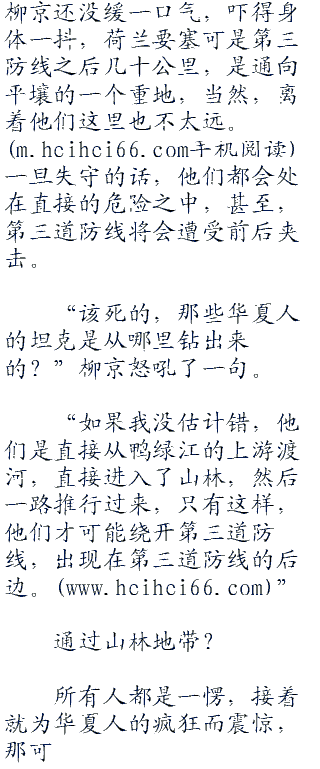 柳京还没缓一口气，吓得身
体一抖，荷兰要塞可是第三
防线之后几十公里，是通向
平壤的一个重地，当然，离
着他们这里也不太远。
(m.hcihci66.com手机阅读)
一旦失守的话，他们都会处
在直接的危险之中，甚至，
第三道防线将会遭受前后夹
击。
“该死的，那些华夏人
的坦克是从哪里钻出来
的？”柳京怒吼了一句。
“如果我没估计错，他
们是直接从鸭绿江的上游渡
河，直接进入了山林，然后
一路推行过来，只有这样，
他们才可能绕开第三道防
线，出现在第三道防线的后
边。(www.hcihci66.com)”
通过山林地带？
所有人都是一愣，接着
就为华夏人的疯狂而震惊，
那可